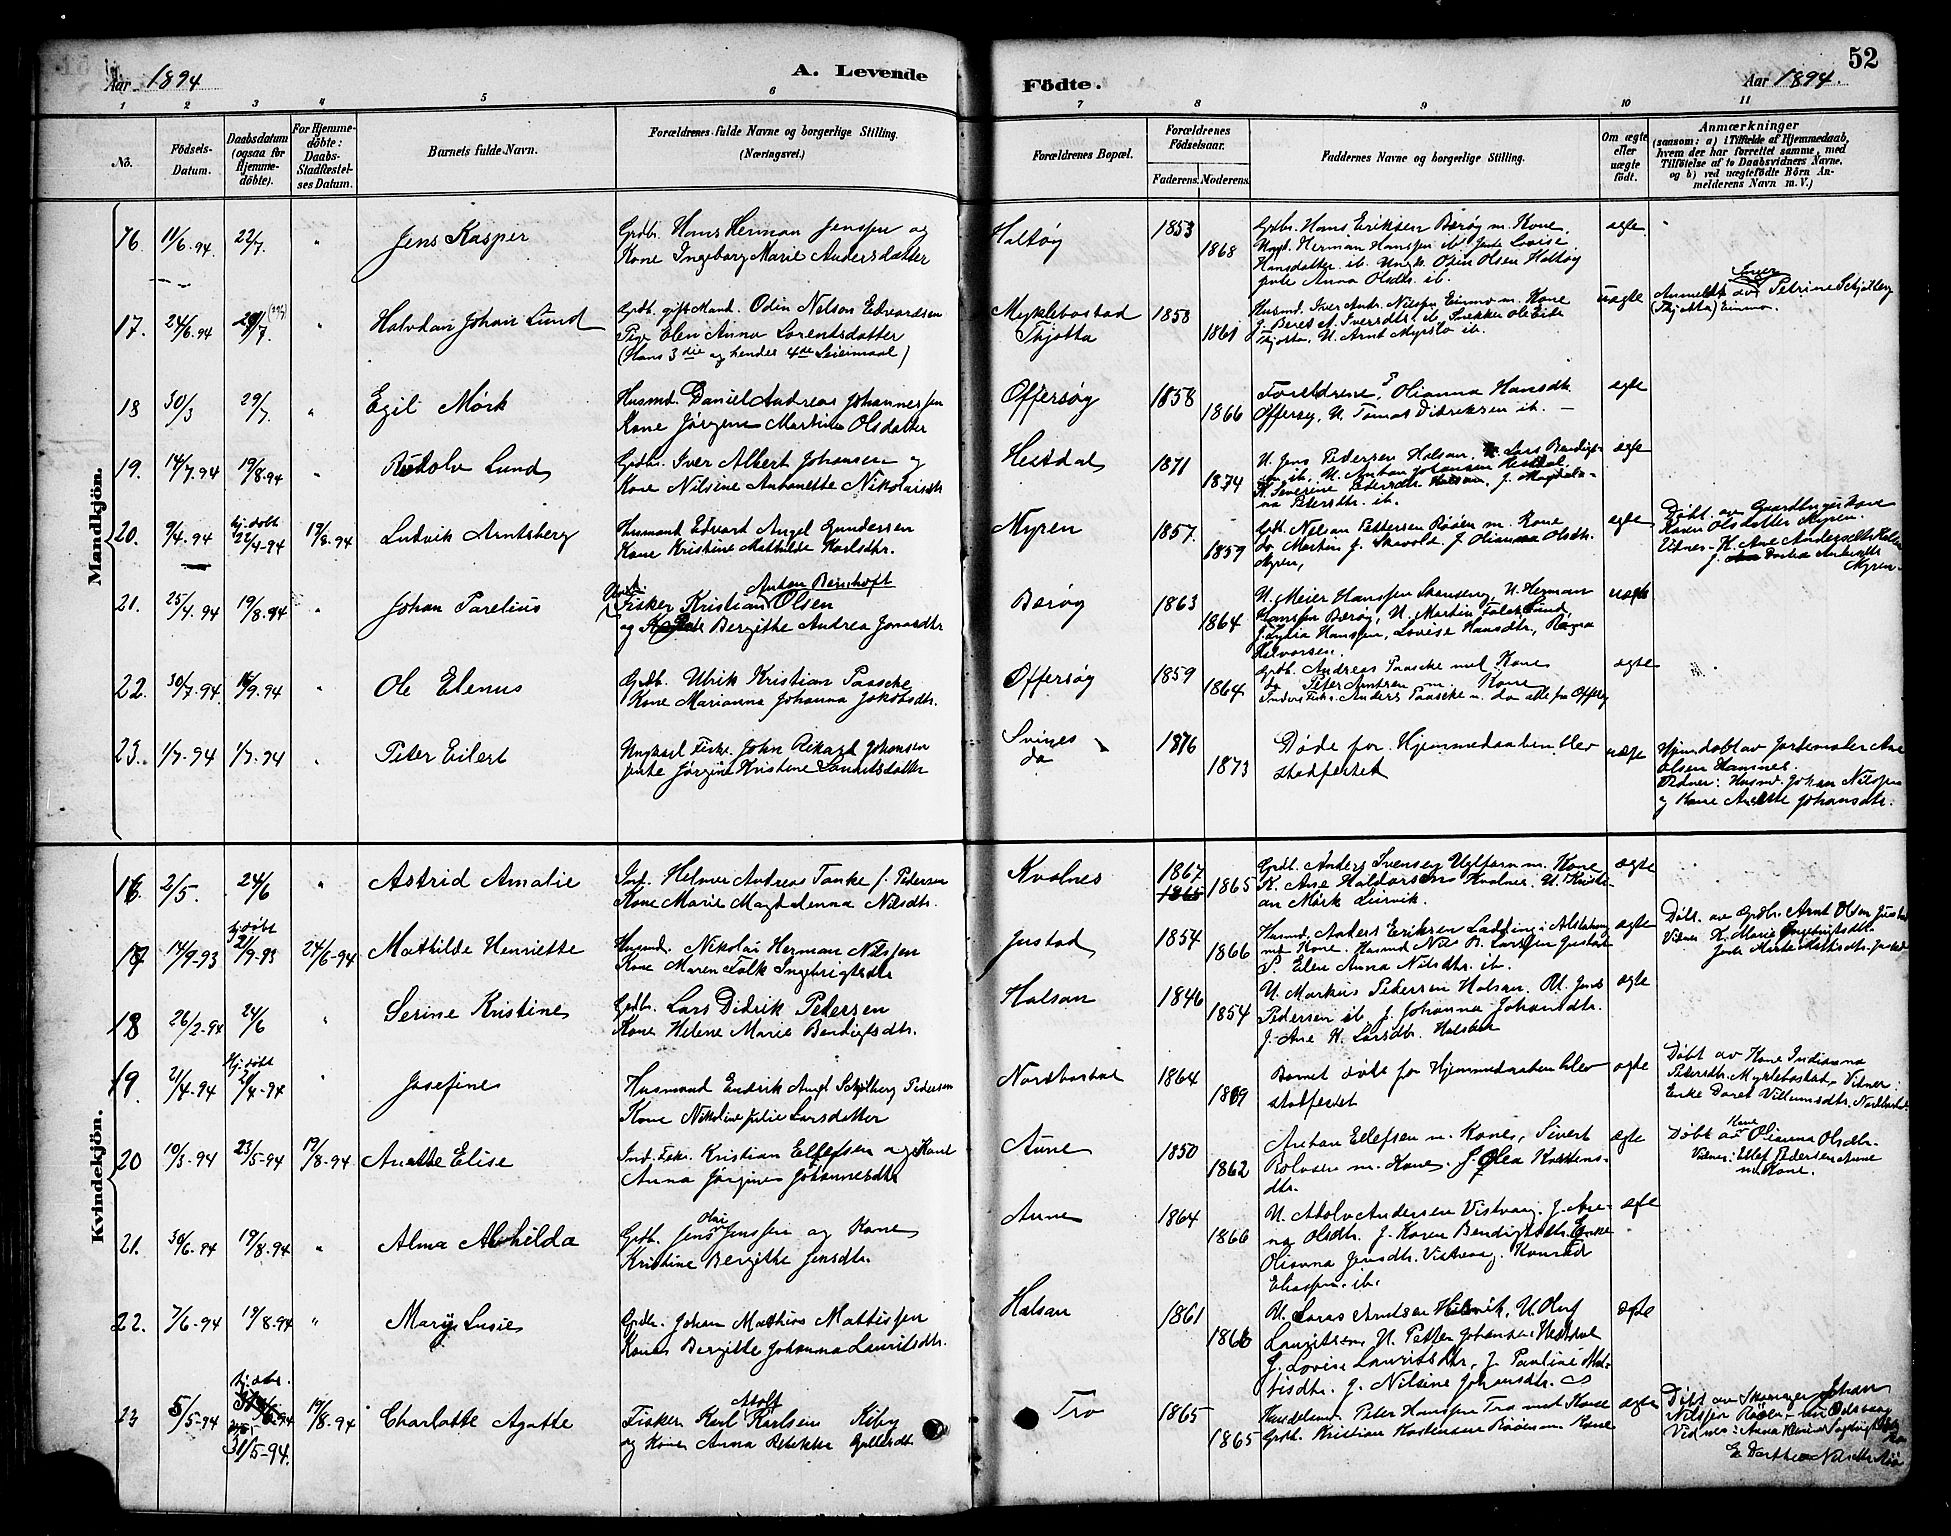 Aar 1894
A. Levende
Födte.
Aar 1894.
52
1 2 3 4 5 6 7 8 9 10 11
No.
Födsels-Datum.
Daabsdatum (ogsaa for Hjemme-döbte).
For Hjemme-döbte: Daabs-Stadfæstel-ses Datum.
Barnets fulde Navn.
Forældrenes fulde Navne og borgerlige Stilling.
(Næringsvei.)
Forældrenes Bopæl.
Forældrenes Födselsaar.
Faderens. Moderens.
Faddernes Navne og borgerlige Stilling.
Om ægte eller uægte födt.
Anmærkninger
(saasom: a) i Tilfælde af Hjemmedaab, hvem der har forrettet samme, med Tilföielse af to Daabsvidners Navne, og b) ved uægtefödte Börn An-melderens Navn m. V.)
Mandkjön.
16 11/6.94 22/7. " Jens Kasper
Grdbr. Hans Herman Jenssen og
Kone Ingeborg Marie Andersdatter
Haltøy 1853 1868
Grdbr. Hans Eriksen Bærøy m. Kone,
Ungk. Herman Hanssen ib. Pode Lovise
Hansdatter ib. Ungk. Odin Olsen Haltøy
pode Anna Olsdtr. ib.
ægte
17. 24/6.94 29/7. " Halvdan Johan Lund
Grdb. gift Mand. Odin Nelson Edvardsen
Pige Elen Anna Lorentsdatter
(Hans 3die og hendes 4de Leiermaal)
Myklebostad
Thjøtta
1858 1861
Husmd. Iver Andr. Nilssen Einmo m. Kone
uægte
Anmeldt av Petrine Schjelberg
(Thjøtta) Einmo.
18 30/3 29/7 " Egil Mörk
Husmd. Daniel Andreas Johannessen
Kone Jörgine Martine Olsdatter
Offersøy 1858 1866
Foreldrene, Olianna Hansdtr.
Offersøy, U. Tomas Didriksen ib.
ægte
19. 14/7.94 19/8.94 " Rudolv Lund
Grdbr. Iver Albert Johansen og
Kone Nilsine Antonette Nikolaisdtr
Hestdal 1871 1874
U. Jens Pedersen Halsan, Lars Bendigt-
sen ib., U. Anton Johansen Hestdal,
K. Severine Pedersdtr. Halsan, J. Magdale-
na Petersdtr. ib.
ægte
20. 9/4.94 hj. døbt 22/4-94 19/8.94 Ludvik Arntsberg
Husmand Edvard Angel Gundersen
Kone Kristine Mathilde Karlsdtr.
Myren 1857. 1859
Grdb. Nelsan Pettersen Røøen m. Kone
do Martin J. Skavold. J. Olianna Olsdtr.
Myren,
ægte
Døbt. av Gaardbruger kone
Karen Olsdatter Myren.
21. 25/4.94 19/8.94 " Johan Parelius
Anton Bernhoft
Fisker Kristian Olsen
og Bergitte Andrea Jonasdtr
Bærøy 1863 1864
U. Meier Hanssen, U. Herman
Hanssen Bærøy, U. Martin Falk Lund,
J. Lydia Hanssen, Lovise Hansdtr, Ragna
Halvorsen.
uægte
22. 30/7.94 16/9.94 " Ole Elenus
Grdb. Ulrik Kristian Paasche
Kone Marianna Johanna Jakobsdtr.
Offersøy 1859 1864
Grdb. Andreas Paasche med Kone
do Peter Arntsen m. Kone
Anders Paasche m. do alle fra Offersøy
ægte
23. 1/7.94 1/7.94 " Peter Eilert
Ungkarl Fisker John Rikard Johansen
pike Jörgine Kristine Lauritsdatter
Svines
do
1876 1873
Døde før Hjemmedaaben blev
stadfestet
uægte
Hjemdøbt av Jordemoder Ane
Olsen Hamnes.
Vidner: Husmd. Johan Nilssen
og Kone Anette Johansdtr.
Kvindekjön.
16. 2/5. 24/6 " Astrid Amalie
Ind. Helmer Andreas Tanke f. Pedersen
Kone Marie Magdalenna Nilsdtr.
Kvalnes 1867 1865 1865
Grdb. Anders Svensen m. Kone
K. Ane Haldorsen Kvalnes. U. Kristi-
an Mörk Leirvik.
ægte
17 14/9-93 hj. døbt 21/9-93 24/6-94 Mathilde Henriette
Husmd. Nikolai Herman Nilssen
Kone Maren Falk Ingebrigtsdtr
Justad 1854 1866
Husmd. Anders Eriksen Lading i Alstahaug
med Kone. Husmd Nils B. Larssen Justad
P. Elen Anna Nilsdtr. ib.
ægte
Døbt. av Grdbr. Arnt Olsen Justad
Vidner K. Marie Ingebrigtsdtr.
18 26/2-94 24/6 " Serine Kristine
Grdbr. Lars Didrik Pedersen
Kone Helene Marie Bendigtsdtr.
Halsan 1846 1854
U. Markus Pedersen Halsan. U. Jens
Pedersen ib. J. Johanna Johansdtr.
J. Ane H. Larsdtr. Halsan
ægte
19. 2/4-94 Hj. døbt 21/4-94 " Josefine
Husmand Endrik Angel Schjelberg Pedersen
Kone Nikoline Julie Larsdatter
Nordbostad 1864 1869
Barnet døde før Hjemmedaaben blev
stadfestet
ægte
Døbt av Kone Indianna
Pedersdtr. Myklebostad. Vidner:
Enke Doret Villumsdtr. Nordbostad
20 10/3-94 23/5-94 19/8-94 Anette Elise
Ind. Fisker. Kristian Ellefsen og Kone
Anna Jörgine Johannesdtr
Aune 1850 1862
Anton Ellefsen m. Kone, Sivert
Rolvsen m. Kone. J. Olea Karstens-
dtr.
ægte
Døbt av Kone Olianna Olsdtr.
Vidner: Ellef Pedersen Aune
m. Kone.
21. 30/6-94 19/8.94 " Alma Alvhilda
Grdb. Jens Olai Jenssen og Kone
Kristine Bergitte Jensdtr.
Aune 1864 1866
U. Adolv Andersen Vistvaag. J. Are-
na Olsdtr. J. Karen Bendigtsdtr. Enke
Olianna Jensdtr. Vistvaag. Konrad
Eliassen ib.
ægte
22. 7/6-94 19/8.94 " Mary Lusie
Grdbr. Johan Mathias Mathissen
Kone Bergitte Johanna Lauritsdtr.
Halsan 1861 1866
U. Laras Arntsen, U. Oluf
Lauritsen, U. Petter Johansen Hestdal
J. Lovise Lauritsdtr, J. Pauline Mat-
hisdtr. J. Nilsine Johansdtr.
ægte
23 5/5-94 hj. døbt. 31/5-94. 19/8-94 Charlotte Agatte
Fisker Karl Adolf Karlsen Kiberg
og Kone Anna Rebekka
Tro 1865 1865
Husdelmd. Peter Hanssen Tro med Kone
Grdb. Kristian Karstensen Røøen m Kone
ægte
Døbt av Johan
Nilssen Røøen